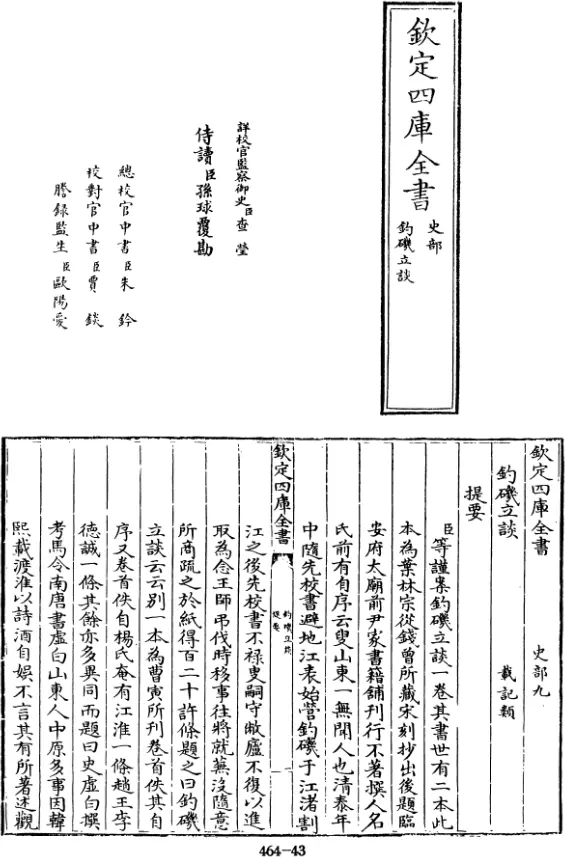 欽定四庫全書
史部
釣磯立談
詳校官監察御史臣查瑩
侍讀臣孫球覆勘
總校官中書臣朱鈐
校對官中書臣賈錟
謄錄監生臣歐陽愛
欽定四庫全書
史部九
釣磯立談
載記類
提要
臣等謹案釣磯立談一卷其書世有二本此
本為葉林宗從錢曾所藏宋刻抄出後題臨
安府太廟前尹家書籍鋪刊行不著撰人名
氏前有自序云叟山東一無聞人也清泰年
中隨先校書避地江表始營釣磯于江渚割
欽定四庫全書
釣磯立談
提要
一
江之後先校書不祿叟嗣守敝廬不復以進
取為念王師弔伐時移事往將就蕪沒隨意
所商疏之於紙得百二十許條題之曰釣磯
立談云云別一本為曹寅所刊卷首佚其自
序又卷首佚自楊氏奄有江淮一條趙王李
德誠一條其餘亦多異同而題曰史虛白撰
考馬令南唐書虛白山東人中原多事因韓
熙載渡淮以詩酒自娛不言其有所著述觀
464-43